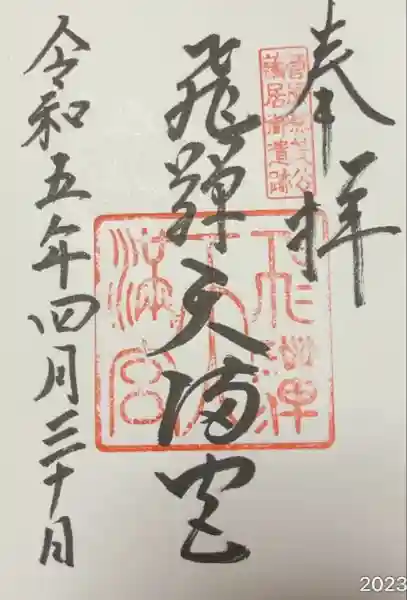 奉拝
居御遺跡
飛騨天満宮
飛騨
天
満宮
令和五年四月三十日
2023